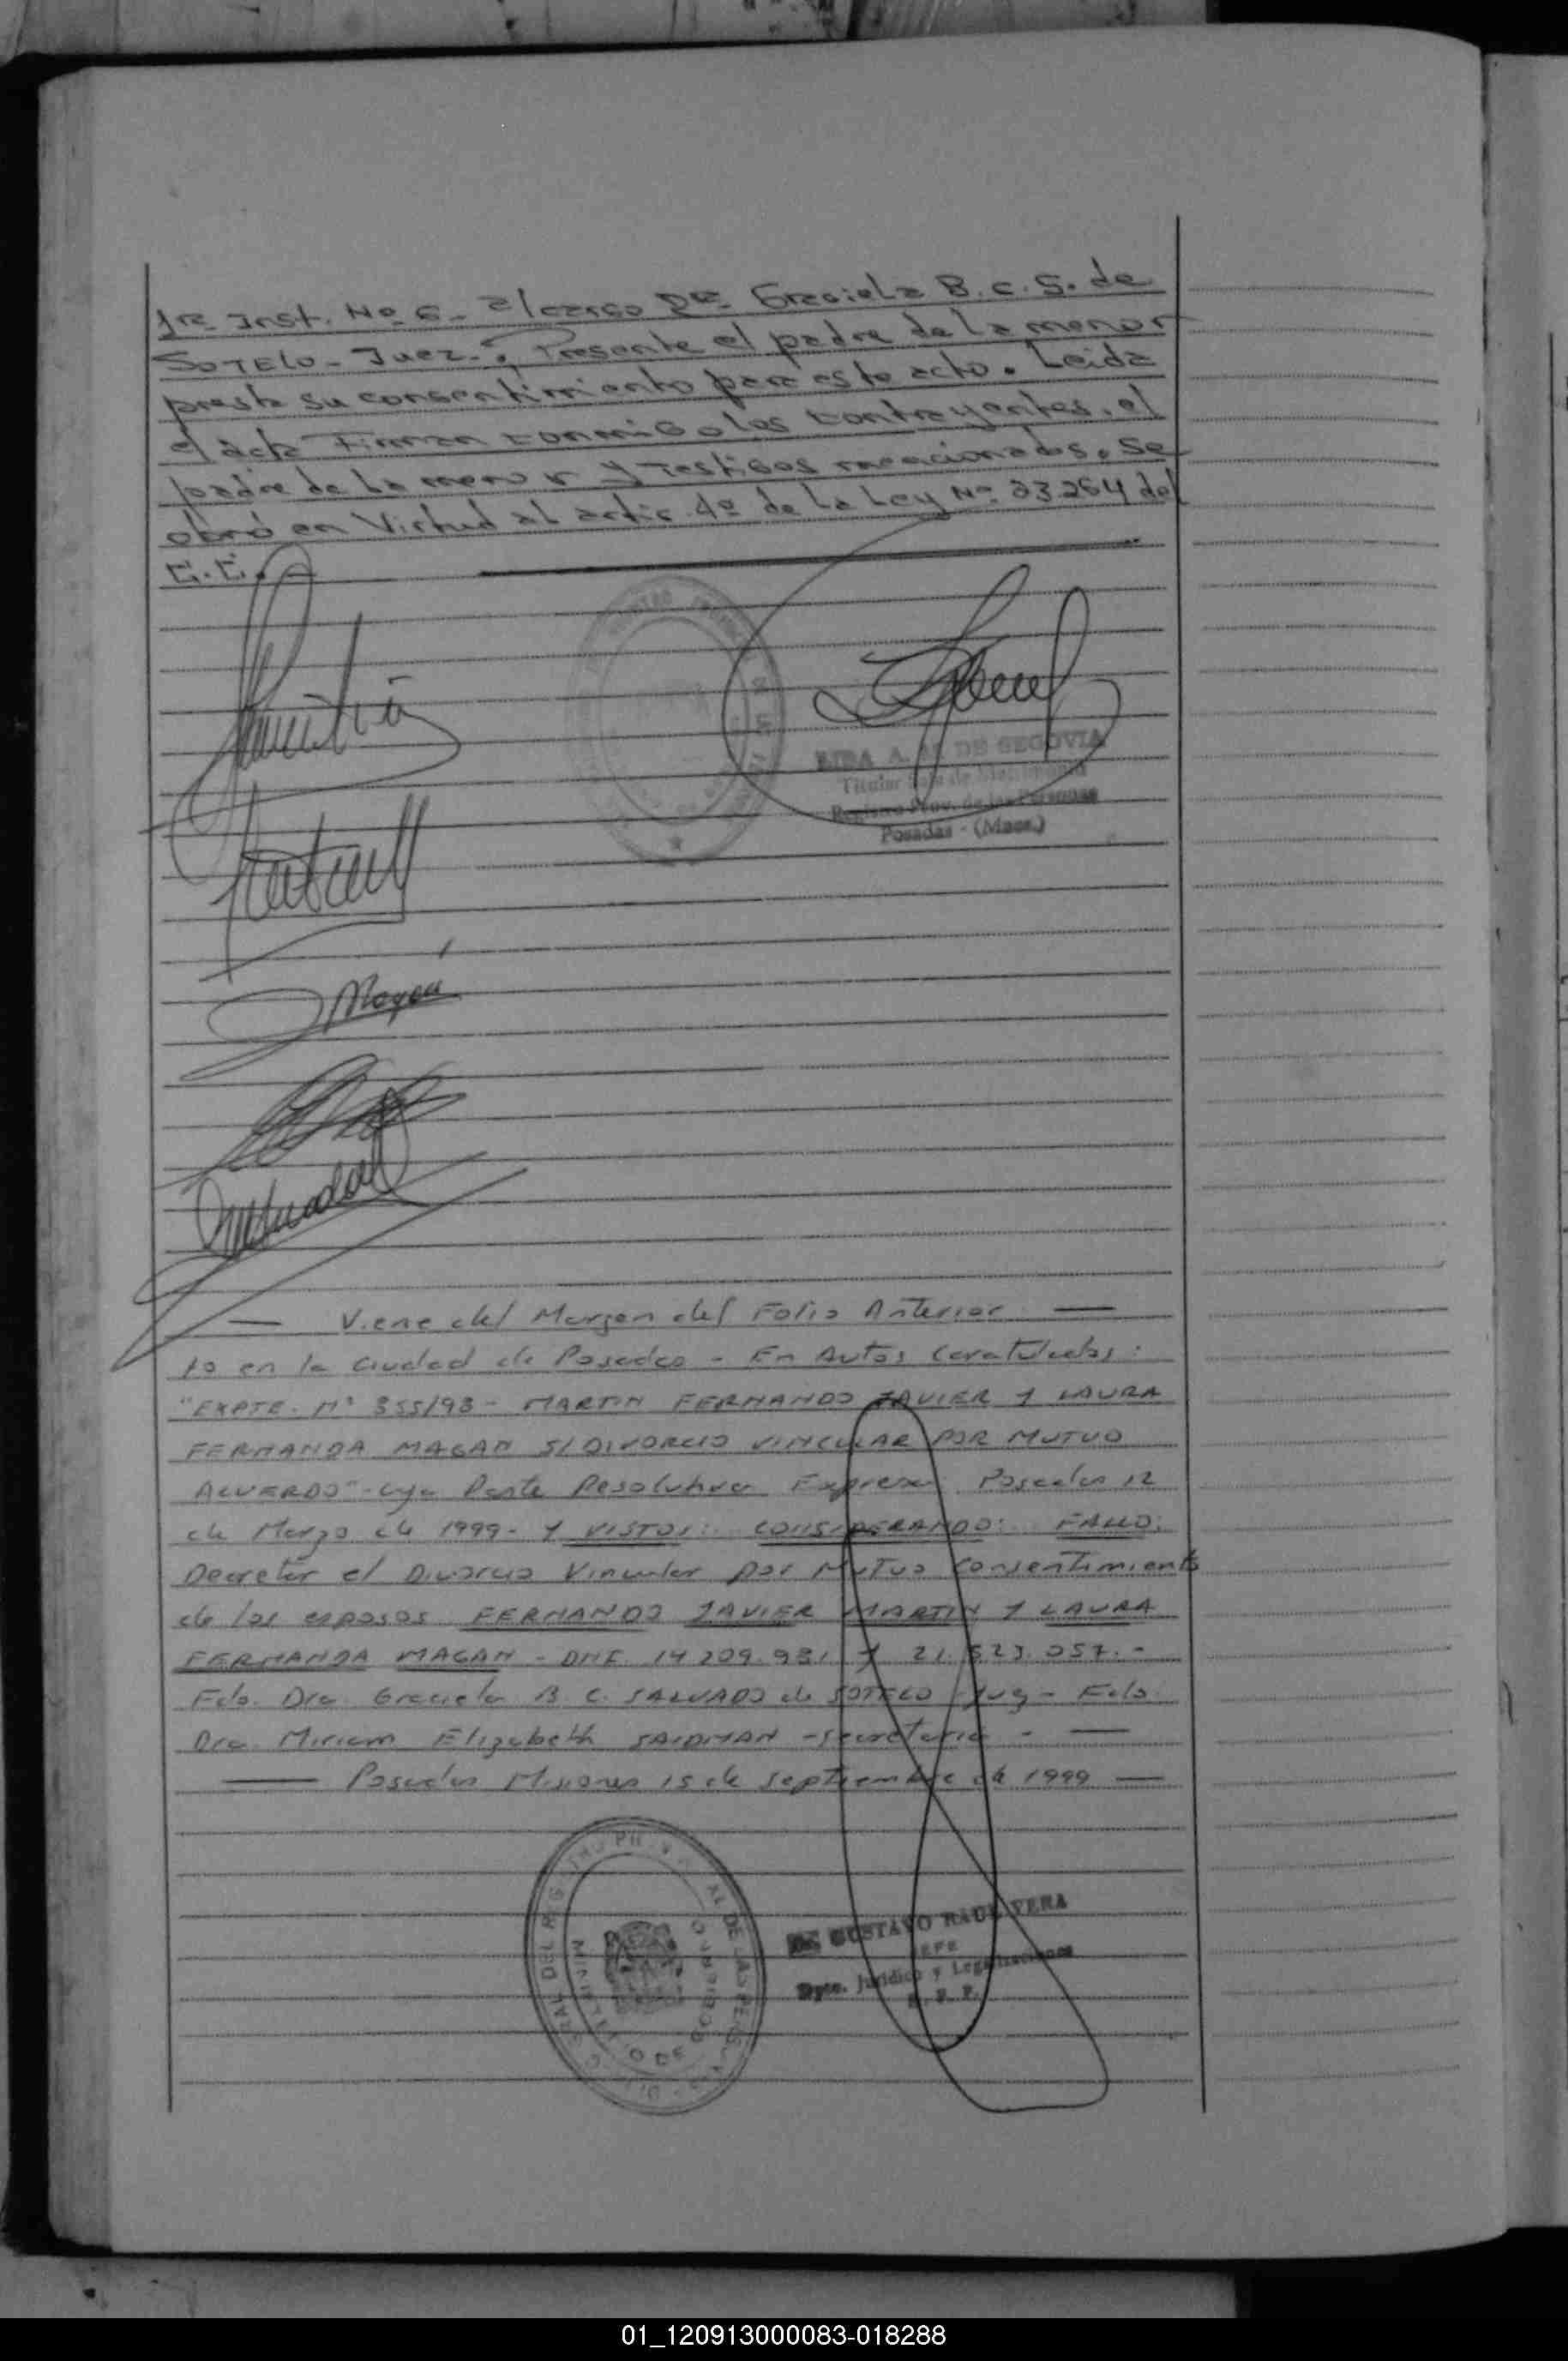 1ra Inst. No 6 - a/cargo Dra. Graciela B. C. S. de
SOTELO - Juez -. Presente el padre de la menor
presta su consentimiento para este acto. Leida
el acta Firman conmigo los contrayentes, el
padre de la menor y Testigos mencionados. Se
obró en Virtud al artic. 4º de la Ley Nº 23.264 del
C.C.
Magan
LIRA A. DE SEGOVIA
Titular Sala de Matrimonio
Registro Prov. de las Personas
Posadas - (Mnes.)
Viene del Margen del Folio Anterior
to en la Ciudad de Posadas - En Autos Caratulados:
"EXPTE. Nº 355/98 - MARTIN FERNANDO JAVIER Y LAURA
FERNANDA MAGAN S/DIVORCIO VINCULAR POR MUTUO
ACUERDO" - cuya Parte Resolutiva Expresa Posadas 12
de Marzo de 1999 - Y VISTOS: CONSIDERANDO: FALLO:
Decretar el Divorcio Vincular por Mutuo Consentimiento
de los esposos FERNANDO JAVIER MARTIN Y LAURA
FERNANDA MAGAN - DNI. 14.209.931 Y 21.523.057.-
Fdo. Dra. Graciela B. C. SALVADO de SOTELO - Juez - Fdo.
Dra. Miriam Elizabeth SAIDMAN - Secretaria -
Posadas Misiones 15 de septiembre de 1999
GUSTAVO RAUL VERA
JEFE
Dpto. Jurídico y Legalizaciones
R. P. P.
MINISTERIO DE GOBIERNO
01_120913000083-018288